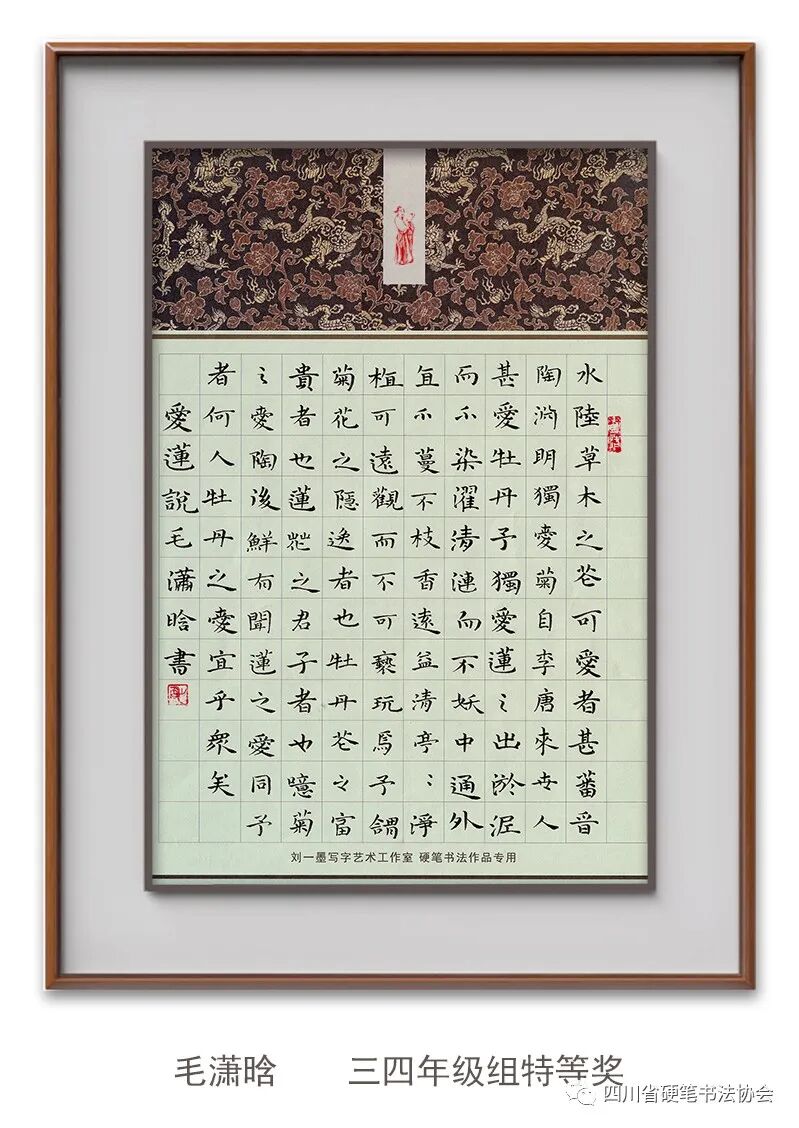 水陸草木之花可愛者甚蕃晉
陶淵明獨愛菊自李唐來世人
甚愛牡丹予獨愛蓮之出淤泥
而不染濯清漣而不妖中通外
直不蔓不枝香遠益清亭〻淨
植可遠觀而不可褻玩焉予謂
菊花之隱逸者也牡丹花之富
貴者也蓮花之君子者也噫菊
之愛陶後鮮有聞蓮之愛同予
者何人牡丹之愛宜乎眾矣
愛蓮說毛瀟晗書
刘一墨写字艺术工作室 硬笔书法作品专用
毛潇晗 三四年级组特等奖
四川省硬笔书法协会